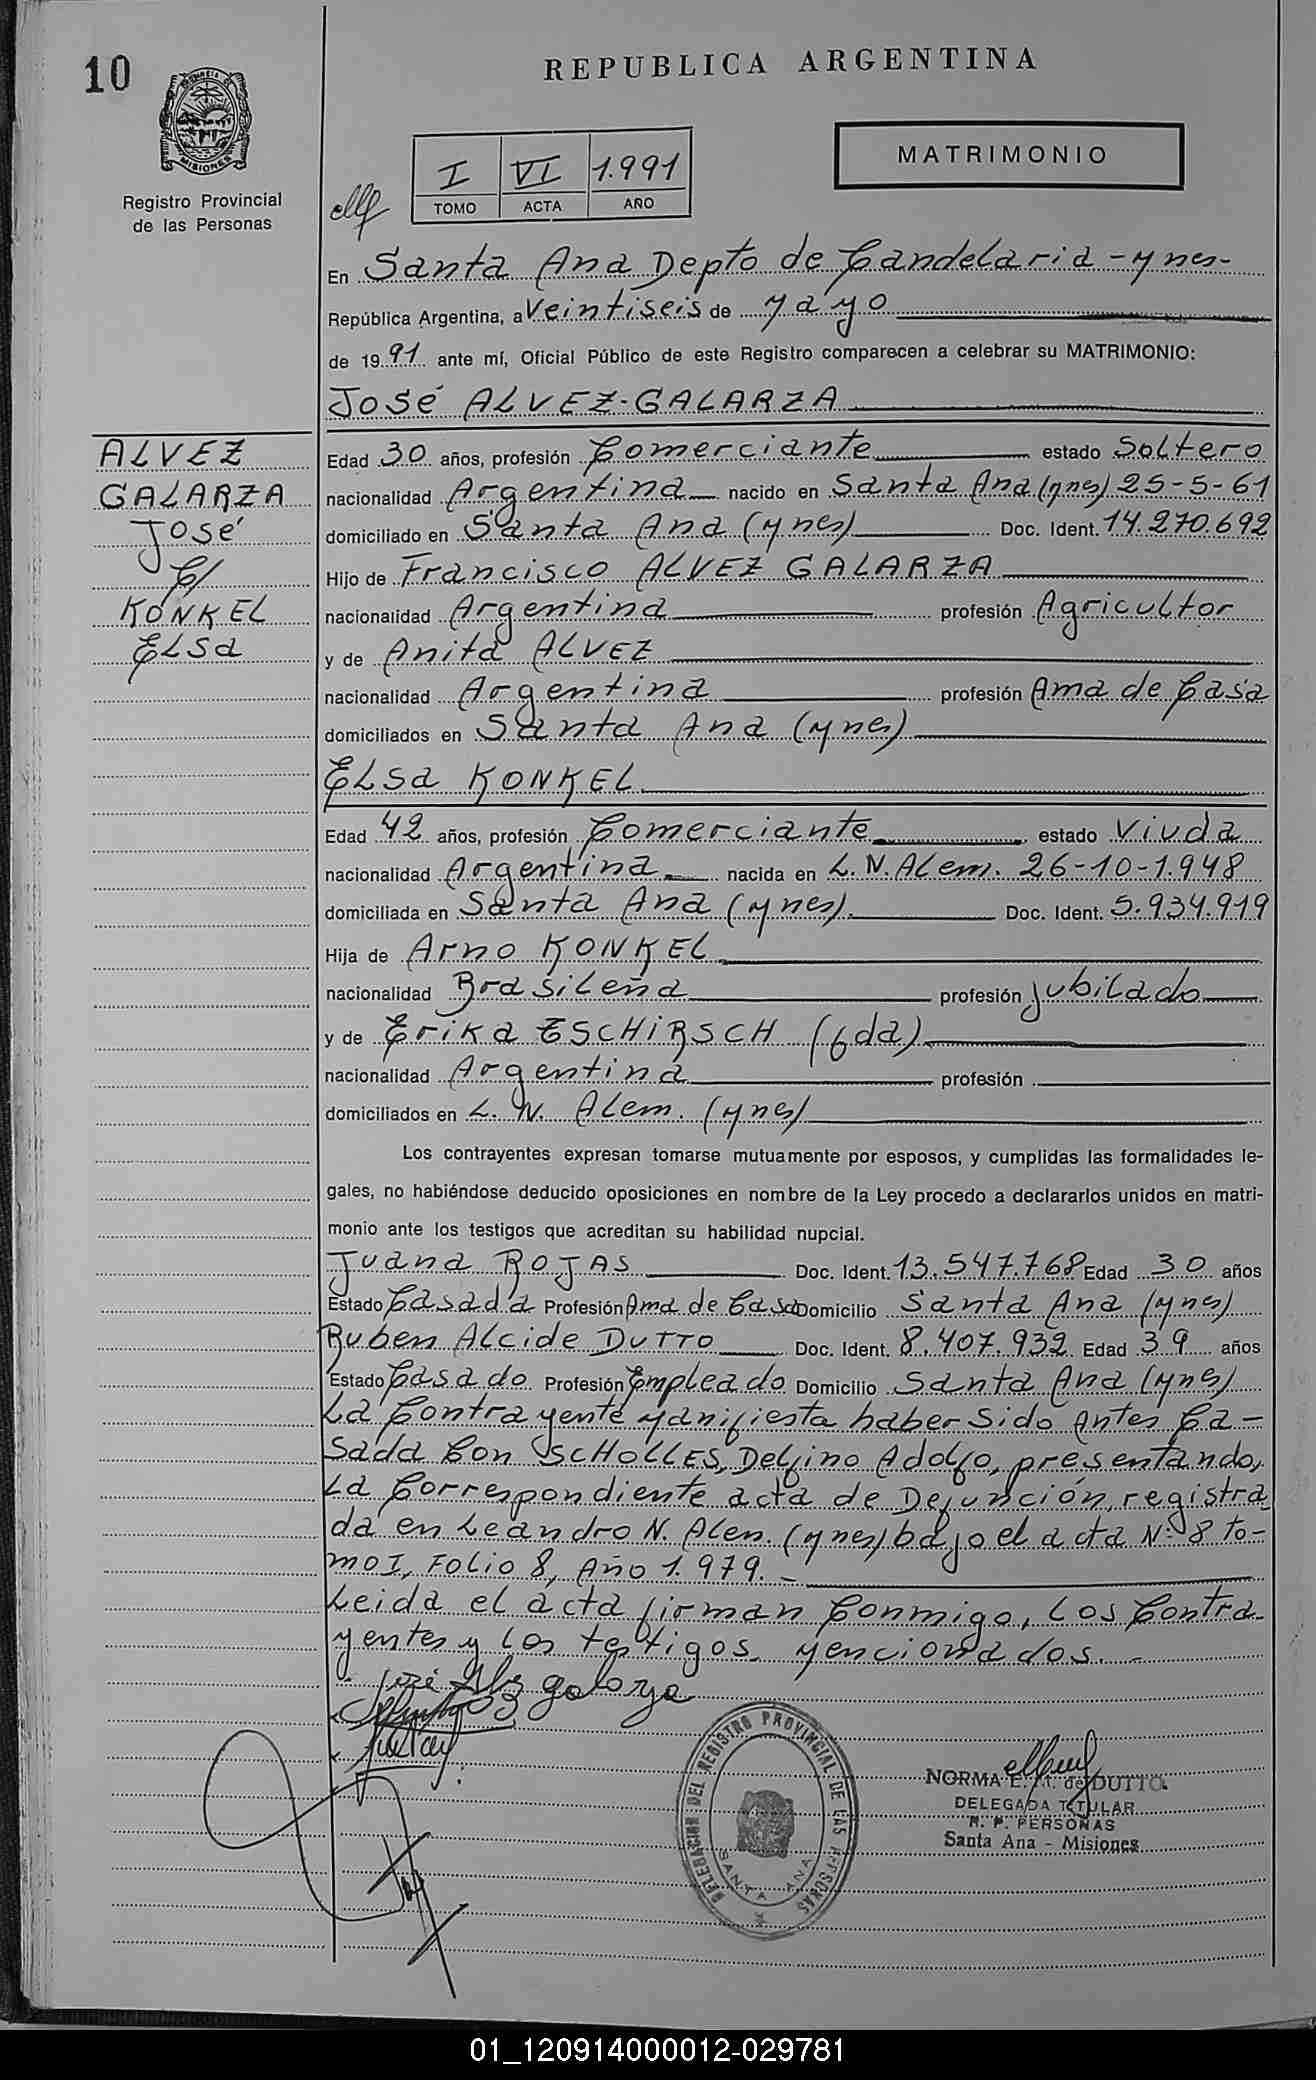 10
REPUBLICA ARGENTINA
MISIONES
Registro Provincial
de las Personas
I VI 1.991
TOMO ACTA AÑO
MATRIMONIO
En Santa Ana Depto de Candelaria - Mnes-
República Argentina, a Veintiseis de Mayo
de 1991 ante mí, Oficial Público de este Registro comparecen a celebrar su MATRIMONIO:
José ALVEZ-GALARZA
ALVEZ
GALARZA
José
C/
KONKEL
ELsa
Edad 30 años, profesión Comerciante estado Soltero
nacionalidad Argentina nacido en Santa Ana (Mnes) 25-5-61
domiciliado en Santa Ana (Mnes) Doc. Ident. 14.270.692
Hijo de Francisco ALVEZ GALARZA
nacionalidad Argentina profesión Agricultor
y de Anita ALVEZ
nacionalidad Argentina profesión Ama de Casa
domiciliados en Santa Ana (Mnes)
ELsa KONKEL
Edad 42 años, profesión Comerciante estado Viuda
nacionalidad Argentina nacida en L.N.ALem. 26-10-1.948
domiciliada en Santa Ana (Mnes). Doc. Ident. 5.934.919
Hija de Arno KONKEL
nacionalidad Brasileña profesión Jubilado
y de Erika ESCHiRSCH (fda)
nacionalidad Argentina profesión
domiciliados en L. N. Alem. (Mnes)
Los contrayentes expresan tomarse mutuamente por esposos, y cumplidas las formalidades le-
gales, no habiéndose deducido oposiciones en nombre de la Ley procedo a declararlos unidos en matri-
monio ante los testigos que acreditan su habilidad nupcial.
Juana ROJAS Doc. Ident. 13.547.768 Edad 30 años
Estado Casada Profesión Ama de Casa Domicilio Santa Ana (Mnes)
Ruben Alcide DUTTO Doc. Ident. 8.407.932 Edad 39 años
Estado Casado Profesión Empleado Domicilio Santa Ana (Mnes)
La Contrayente Manifiesta haber Sido Antes Ca-
sada Con SCHOLLES, Delfino Adolfo, presentando,
La Correspondiente acta de Defunción, registra
da en Leandro N. Alen. (Mnes) bajo el acta N° 8 to-
mo I, Folio 8, Año 1.979.-
Leida el acta firman Conmigo, los Contra-
yentes y los testigos Mencionados.-
José Alvez galarza
DELEGACION DEL REGISTRO PROVINCIAL DE LAS PERSONAS
SANTA ANA
NORMA E. M. de DUTTO
DELEGADA TITULAR
R. P. PERSONAS
Santa Ana - Misiones
01_120914000012-029781